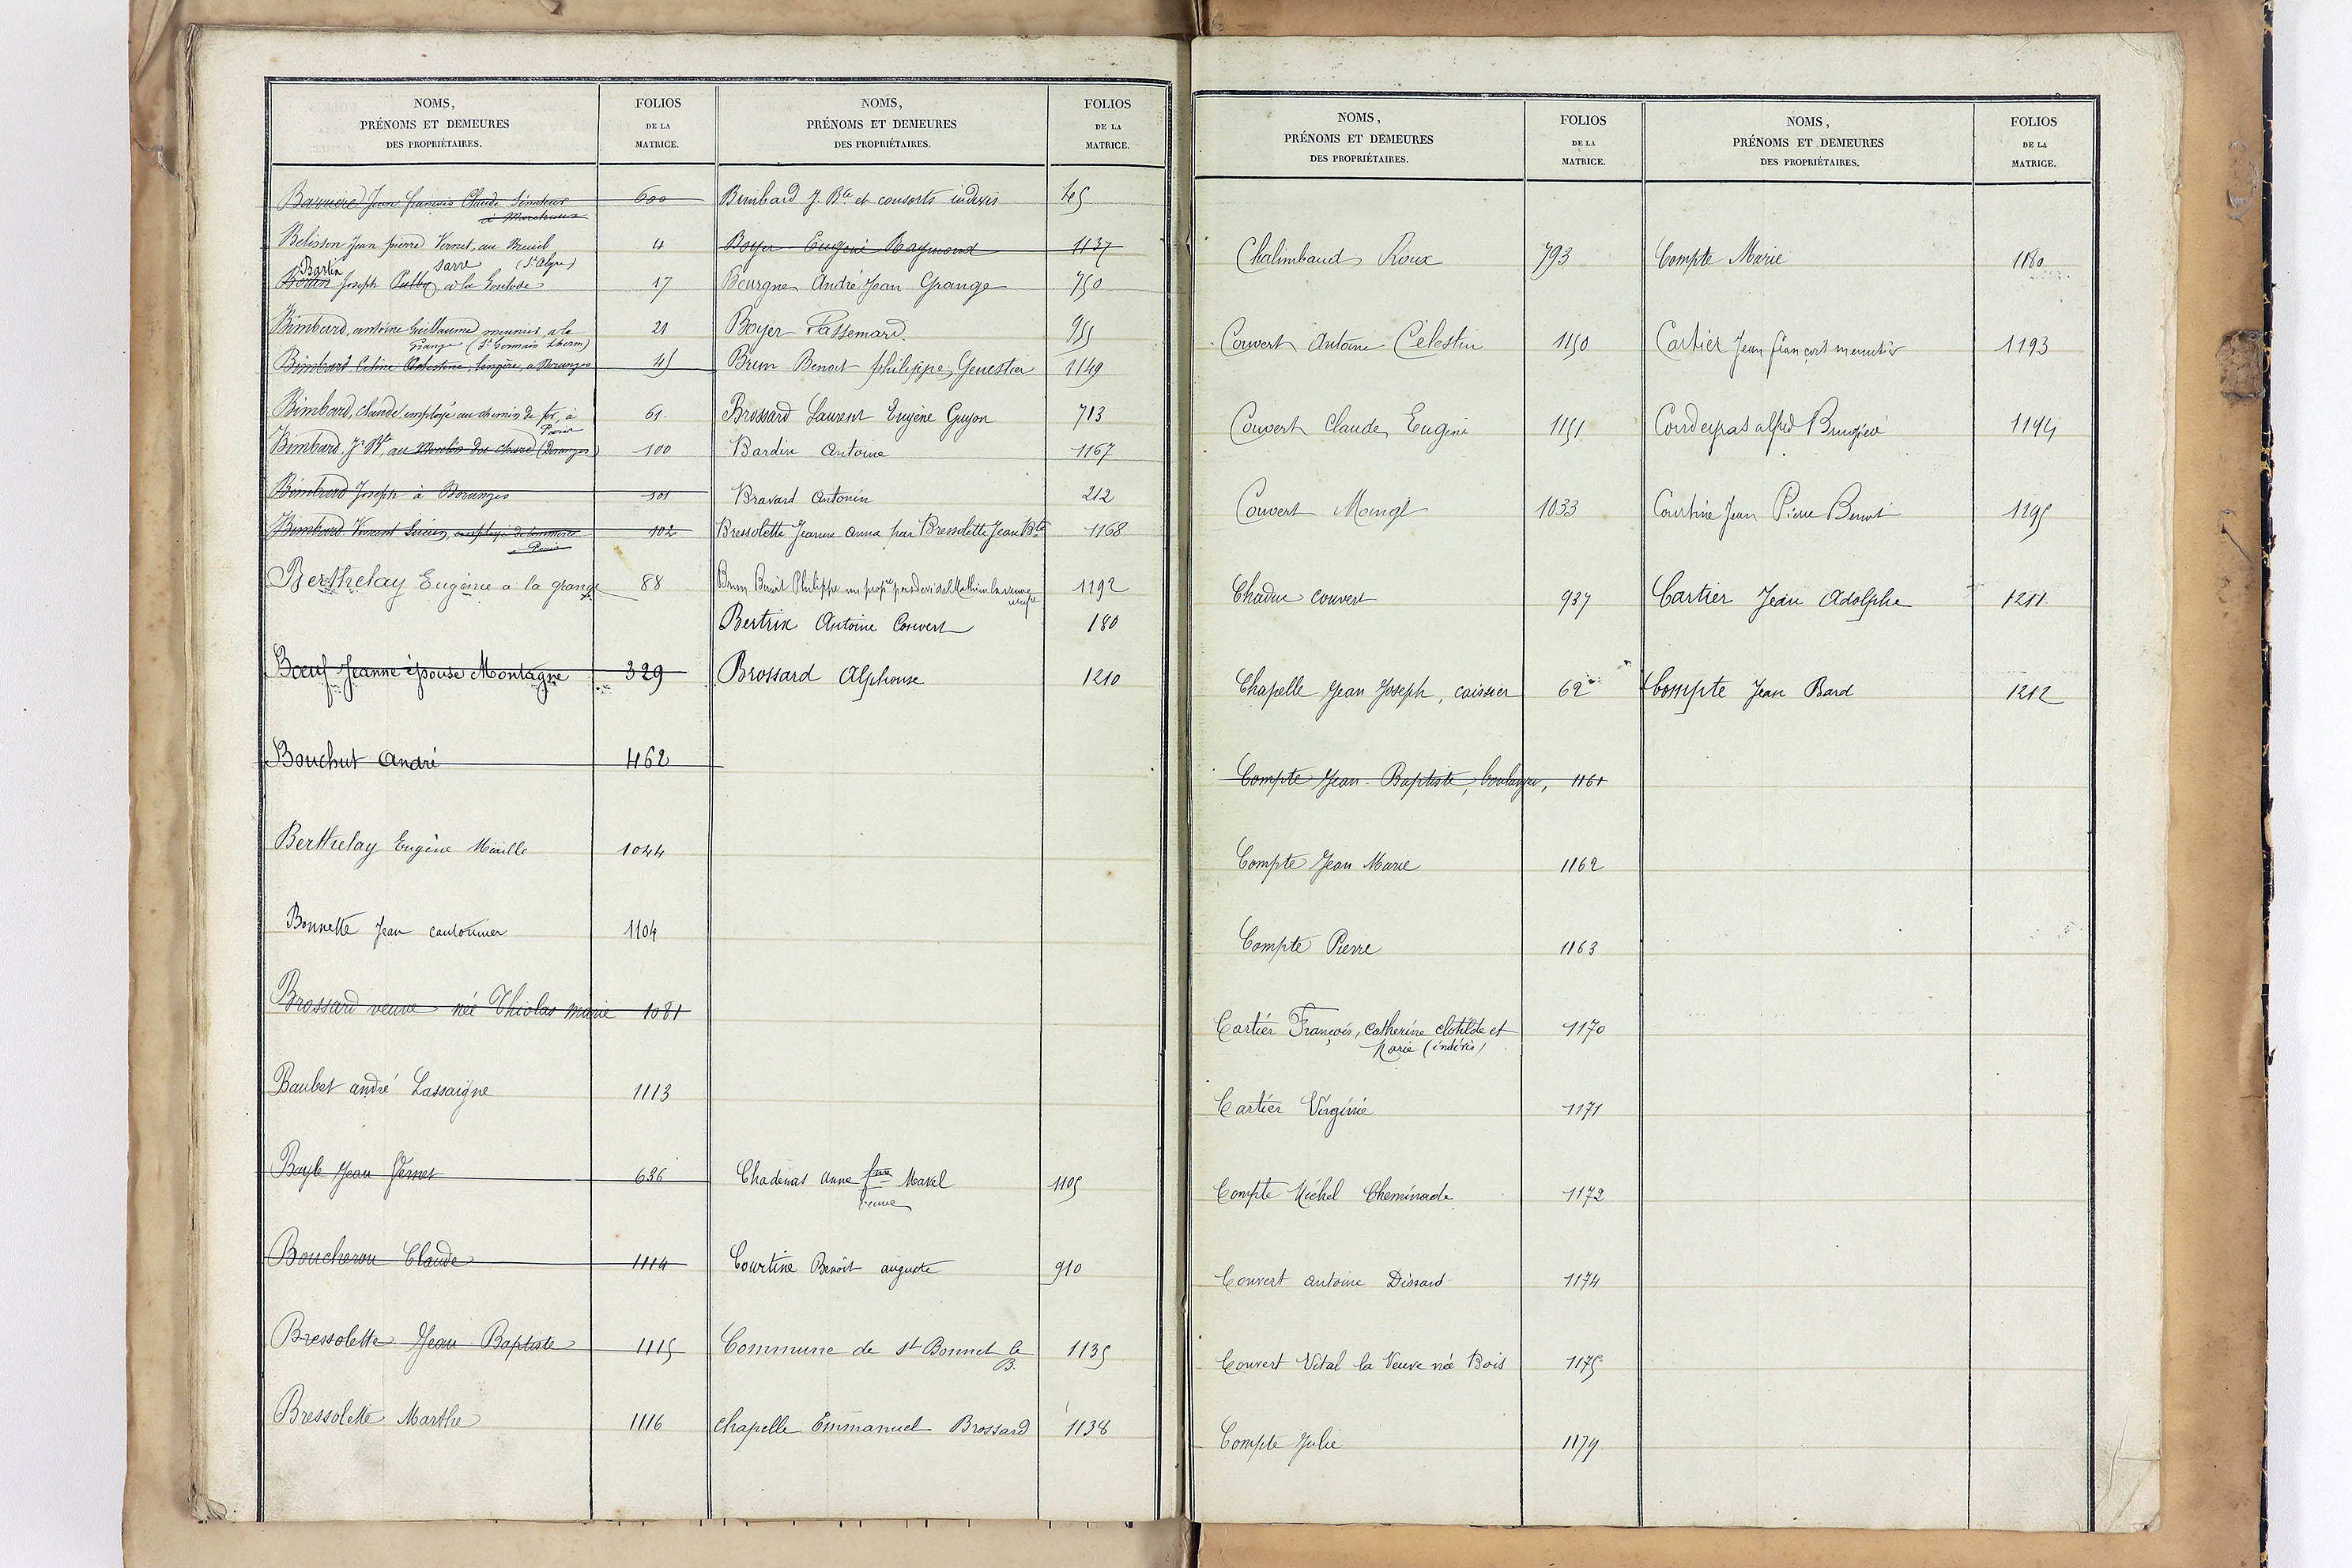 NOMS,
PRÉNOMS ET DEMEURES
DES PROPRIÉTAIRES.
FOLIOS
DE LA
MATRICE.
Jean françois Claude 600
Belisson Jean pierre Vernet, au Breuil 4
Sarre (St Alyre)
Bartin
Joseph à la 17
Bimbard, antoine Guillaume meunier a la 21
Grange (St Germain Lherm)
Bimbard Celine Celestine, lingère, a Doranges 45
Bimbard, claude, employé au chemin de fer, à 61.
Paris
Bimbard. J. Bte au Moulin du (Doranges) 100
Bimbard Joseph à Doranges 101
Bimbard Vincent Lucien, employé de commerce 102
à Paris
Berthelay Eugénie a la grange 88
Bœuf Jeanne épouse Montagne 329
Bouchut André 462
Berthelay Eugène Miaille 1044
Bonnette Jean cantonnier 1104
Brossard veuve née Thiolas marie 1081
Baubet andré Lassaigne 1113
Bayle Jean Vernet 636
Boucheron Claude 1114
Bressolette Jean Baptiste 1115
Bressolette Marthe 1116
NOMS,
PRÉNOMS ET DEMEURES
DES PROPRIÉTAIRES.
FOLIOS
DE LA
MATRICE.
Bimbard J. Bte et consorts indivis 45
Boyer Eugène Raymond 1137
Bourgne André Jean Grange 750
Boyer Passemard. 955
Brun Benoit philippe Genestier 1149
Brossard Laurent Eugène Guyon 713
Bardin Antoine 1167
Bravard Antonin 212
Bressolette Jeanne Anna par Bressolette Jean Bte 1168
Brun Benoit Philippe nu propre par la veuve 1192
Bertrix Antoine Couvert 180
Brossard Alphonse 1210
Chadenas Anne fme Maxel 1105
veuve
Courtine Benoît auguste 910
Commune de St Bonnet le 1135
B.
Chapelle Emmanuel Brossard 1138
NOMS,
PRÉNOMS ET DEMEURES
DES PROPRIÉTAIRES.
FOLIOS
DE LA
MATRICE.
Chalimbaud Roux 793
Couvert Antoine Célestin 1150
Couvert Claude Eugène 1151
Couvert 1033
Chadue couvert 937
Chapelle Jean Joseph, caissier 62
Compte Jean-Baptiste, boulanger, 1161
Compte Jean Marie 1162
Compte Pierre 1163
Cartier François, Catherine Clotilde et 1170
Marie (indivis)
Cartier Virginie 1171
Compte Michel Cheminade 1172
Couvert Antoine Dissard 1174
Couvert Vital la Veuve née Bois 1175
Compte Julie 1179
NOMS,
PRÉNOMS ET DEMEURES
DES PROPRIÉTAIRES.
FOLIOS
DE LA
MATRICE.
Compte Marie 1180
Cartier Jean françois menuisier 1193
Coudeyras alfred 1194
Courtine Jean Pierre Benoit 1195
Cartier Jean Adolphe 1211
Compte Jean Bard 1212